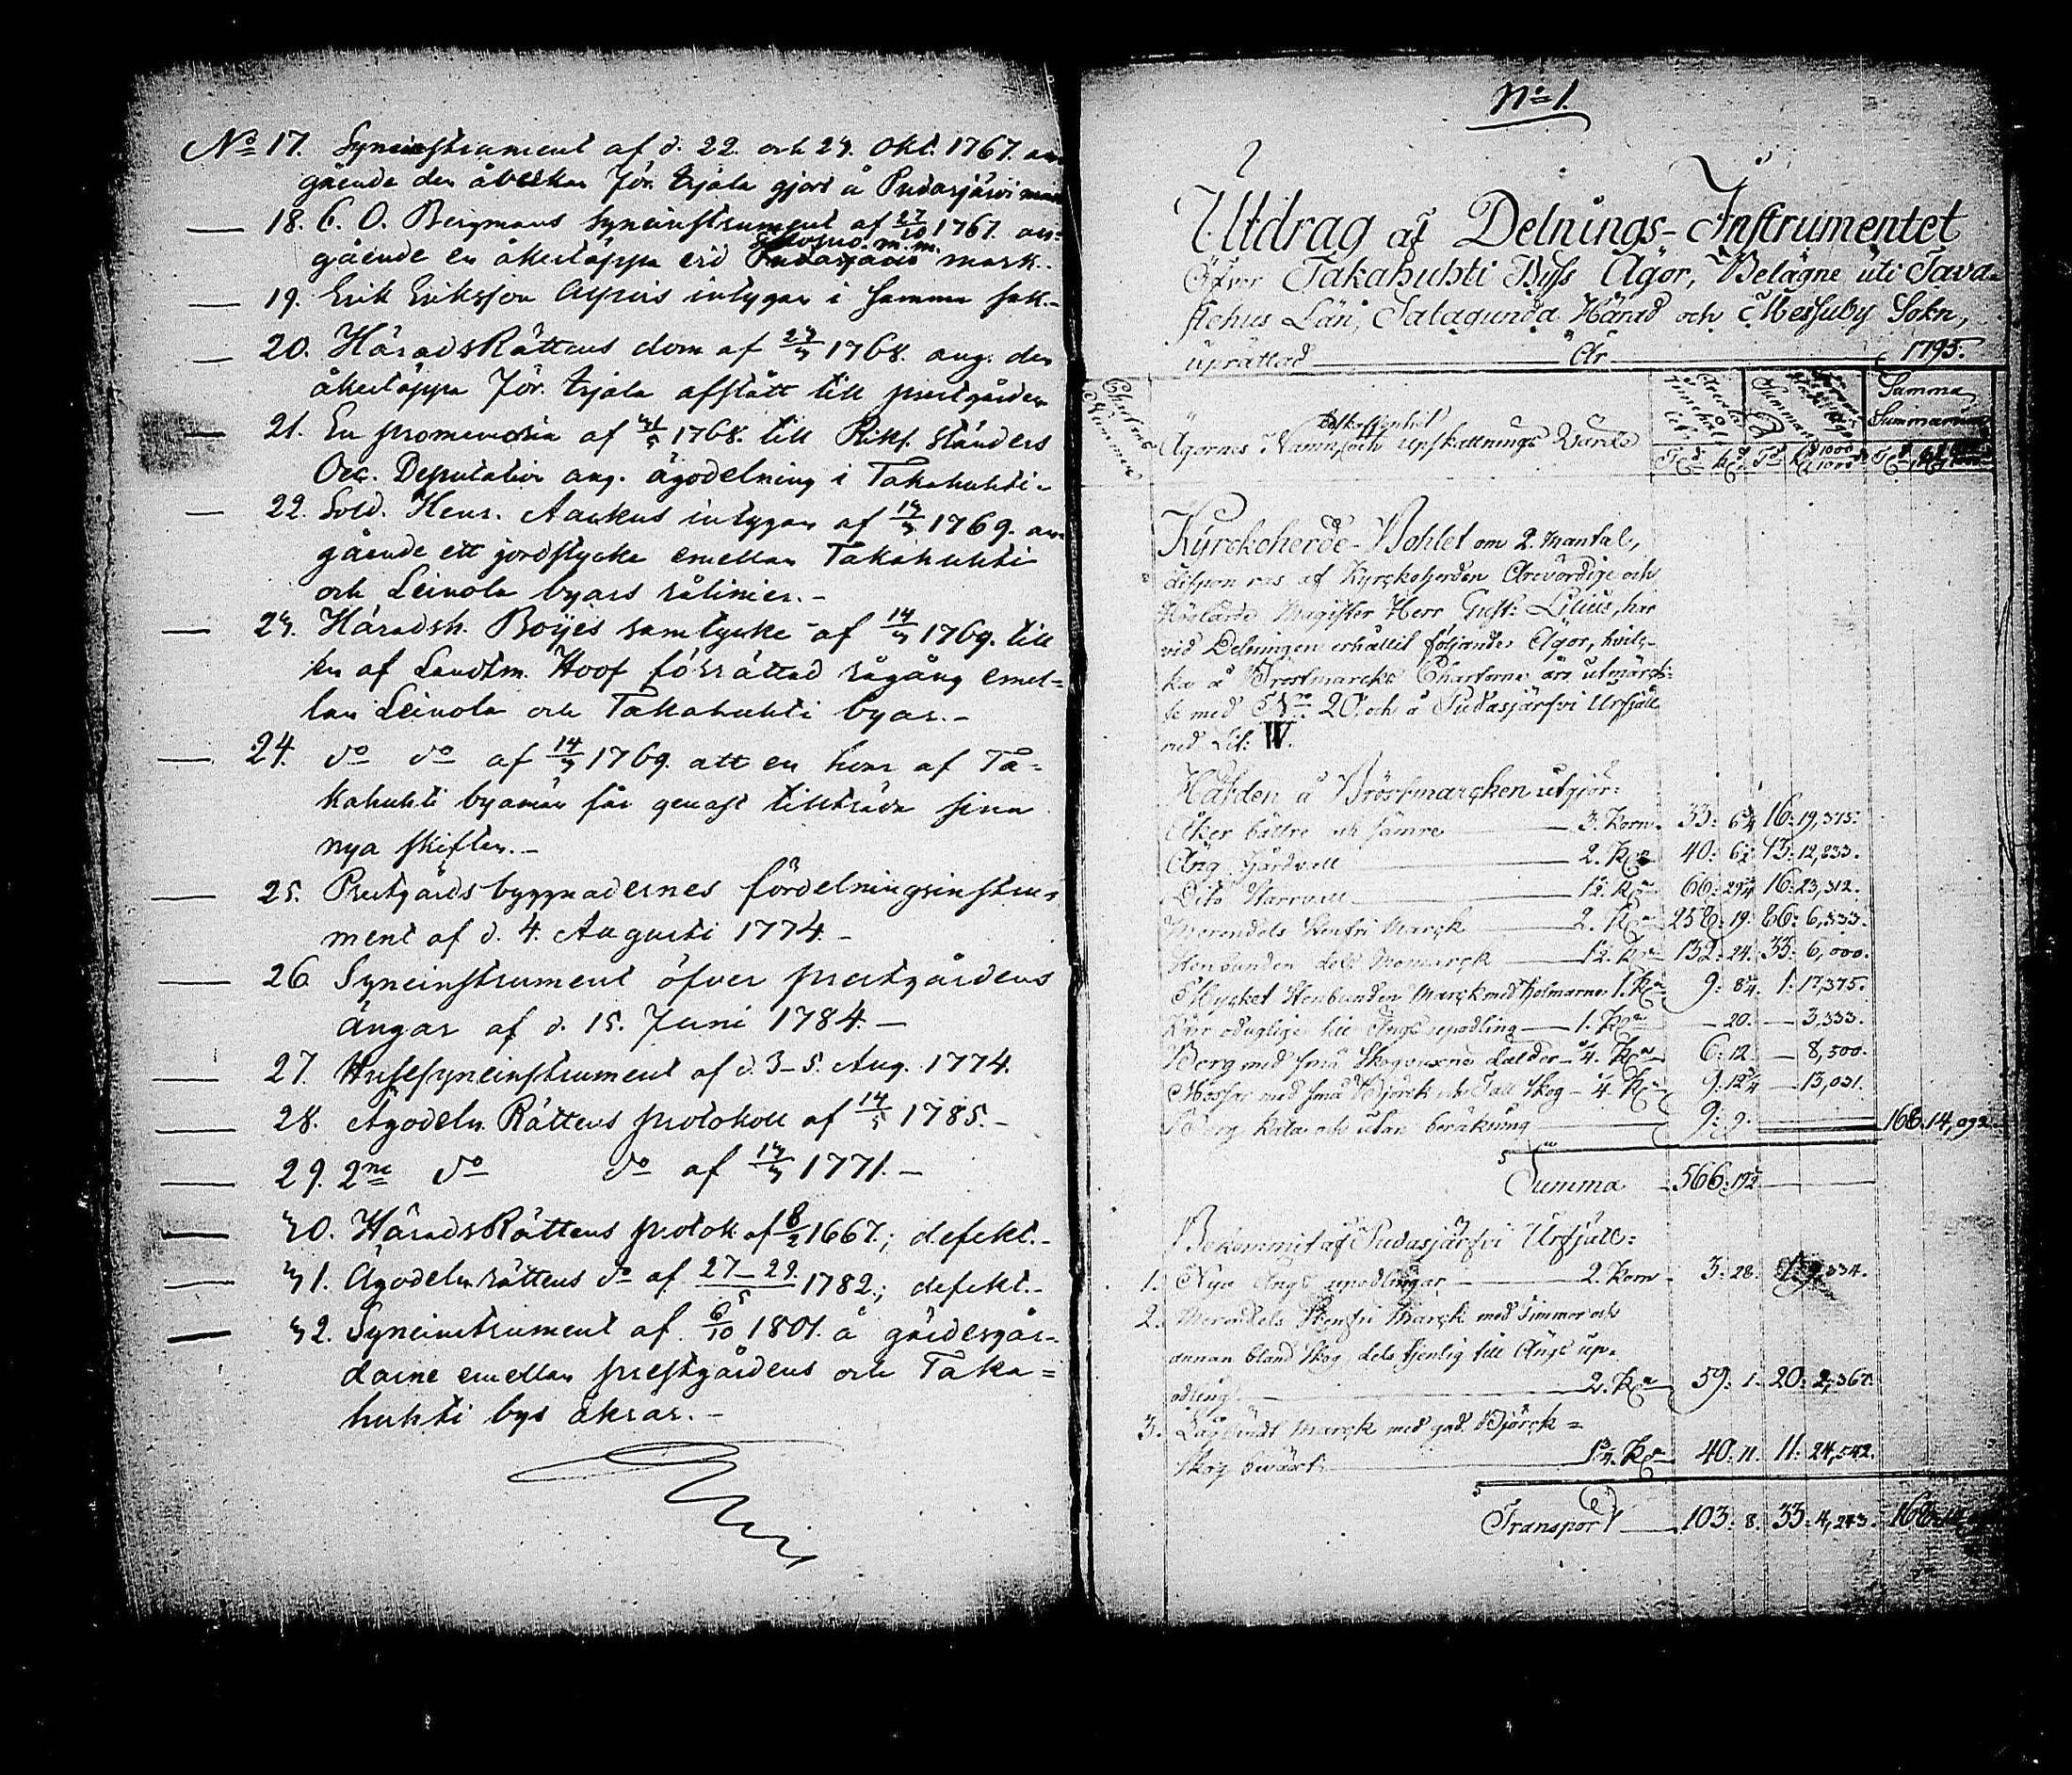 No 17. Syneinstrument af d. 22. och 23. Okt. 1767. an-
gående den åverkan Jör. Erjala gjort å Pudasjärvi mark
18. C. O. Bergmans Syneinstrument af 27/10 1767. an-
gående en åkertäppa vid Pudasjärvi m. m. mark.
19. Erik Eriksson intygar i samma sak.-
20. HäradsRättens dom af 23/3 1768. ang. den
åkertäppa Jör. Erjala afstått till prestgården
21. En promemoria af 31/5 1768. till Riks. Ständers
Oec. Deputation ang. ägodelning i Takahuhti.-
22. Sold. Henr. Aarkus intygar af 13/3 1769. an-
gående ett jordstycke emellan Takahuhti
och Leinola byars rålinier.-
23. Häradsh. Boijes samtycke af 14/3 1769. till
en af Landtm. Hoof förrättad rågång emel-
lan Leinola och Takahuhti byar.-
24. do do af 14/3 1769. att en hvar af Ta-
kahuhti byamän får genast tillträda sina
nya skiften.-
25. Prestgårdsbyggnadernes fördelningsinstru-
ment af d. 4. Augusti 1774.-
26. Syneinstrument öfver prestgårdens
ängar af d. 15. Juni 1784.-
27. Husesyneinstrument af d. 3-5. Aug. 1774.
28. Ägodeln. Rättens protokoll af 14/5 1785.-
29. 2ne do do af 13/3 1771.-
30. HäradsRättens protok. af 8/2 1667.; defekt.-
31. Ägodelnrättens do af 27-29./5 1782.; defekt.-
32. Syneinstrument af 6/10 1801. å gärdesgår-
darne emellan prestgårdens och Taka=
huhti bys åkrar.-
No 1.
Utdrag af Delnings-Instrumentet
Öfver Takahuhti Byss Ägor, Belägne uti Tava-
stehus Län, Satagunda Härad och Messuby Sokn,
uprättad År 1795.
Chartans Nummer
Ägornes Namn, Beskaffenhet och Upskattnings Värde
Summa
Summarum
Kyrckoherde-Bohlet om 2. Mantal,
disponeras af Kyrckoherden Ärevördige och
Höglärde Magister Herr Gust: Lilius, har
vid Delningen erhållit följande Ägor, hvil-
ka å Bröstmarcks Chartorne äro utmärck-
te med No 20. och å Pudasjärfvi Urfjäll
med Lit: W.
Häfden å Bröstmarcken utgjör:
Åker bättre och sämre 3. Korn. 33: 6 3/4 16: 19,375.
Äng Hårdvall 2. Kn 40: 6 1/2 13: 12,833.
Dito Starrvall 1 1/2. Kn 66: 29 3/4 16: 23,312.
Merendels Stenfri Marck 2. Kn 258: 19. 86: 6,333.
Stenbunden dels Momarck 1 1/2. Kn 132: 24. 33: 6,000.
Mycket Stenbunden Marck med Holmarne 1. Kn 9: 8 1/4 1: 17,375.
Kärr oduglige till Ängs upodling 1. Kn — 20. — 3,333.
Berg med små Skogvuxne Dälder 1/4. Kn 6: 12. — 8,500.
Mossar med små Björck och Tall Skog 1/4. Kn 9: 12 3/4 — 13,031.
Berg kala och utan beräkning 9: 9. 168. 14,092.
Summa 566: 19 1/2
Bekommit af Pudasjärfvi Urfjäll:
1. Nya Ängs upodlingar 2. Korn 3: 28. 1: 9,334.
2. Merendels Stenfri Marck med Timmer och
annan bland Skog, dels tjenlig till Ängs up-
odling 2. Kn 59: 1. 20: 2,367.
3. Marck med god Björck=
Skog bevärt 1 3/4. Kn 40: 11. 11: 24,542.
Transport 103: 8. 33: 4,243. 168: 14,